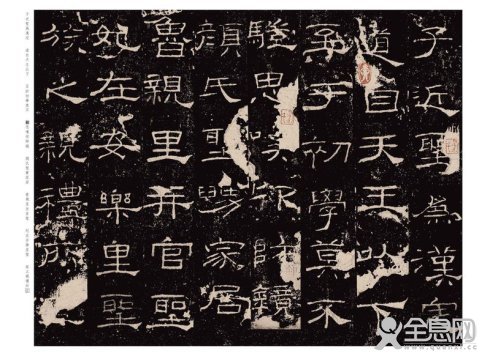 子近聖爲漢定
道自天王以下
至于初學莫不
駿思嘆卬師鏡
顏氏聖舅家居
魯親里并官聖
妃在安樂里聖
族之親禮所
全息网